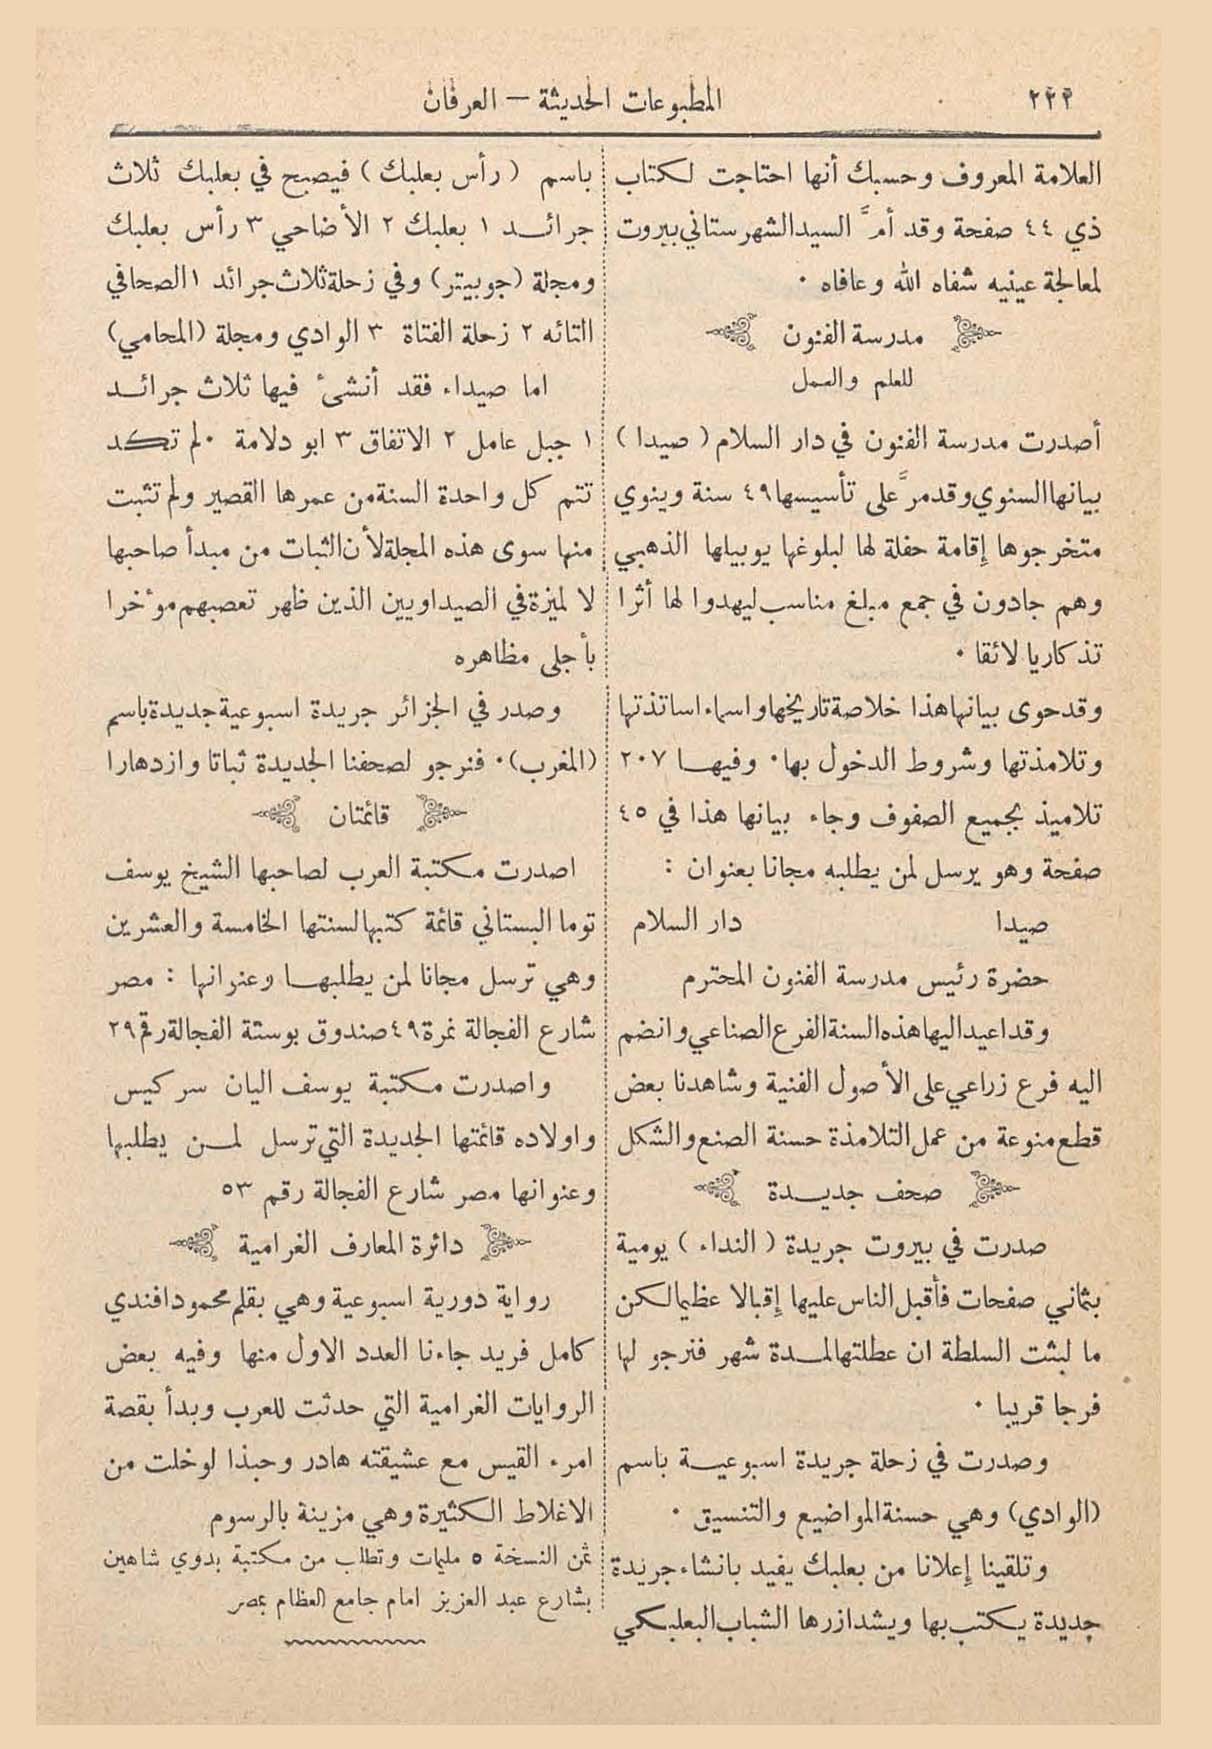 المطبوعات الحديثة — العرفان
العلامة المعروف وحسبك أنها احتاجت لكتاب
ذي ٤٤ صفحة وقد أمَّ السيد الشهرستاني بيروت
لمعالجة عينيه شفاه الله وعافاه ٠
مدرسة الفنون
للعلم والعمل
أصدرت مدرسة الفنون في دار السلام ( صيدا )
بيانها السنوي وقد مرَّ على تأسيسها ٤٩ سنة وينوي
متخرجوها إقامة حفلة لها لبلوغها يوبيلها الذهبي
وهم جادون في جمع مبلغ مناسب ليهدوا لها أثرا
تذكاريا لائقا ٠
وقد حوى بيانها هذا خلاصة تاريخها واسماء اساتذتها
وتلامذتها وشروط الدخول بها ٠ وفيها ٢٠٧
تلاميذ بجميع الصفوف وجاء بيانها هذا في ٤٥
صفحة وهو يرسل لمن يطلبه مجانا بعنوان :
صيدا دار السلام
حضرة رئيس مدرسة الفنون المحترم
وقد اعيد اليها هذه السنة الفرع الصناعي وانضم
اليه فرع زراعي على الأصول الفنية وشاهدنا بعض
قطع منوعة من عمل التلامذة حسنة الصنع والشكل
صحف جديدة
صدرت في بيروت جريدة ( النداء ) يومية
بثماني صفحات فأقبل الناس عليها إقبالا عظيما لكن
ما لبثت السلطة ان عطلتها لمدة شهر فنرجو لها
فرجا قريبا ٠
وصدرت في زحلة جريدة اسبوعية باسم
(الوادي) وهي حسنة المواضيع والتنسيق ٠
وتلقينا إعلانا من بعلبك يفيد بانشاء جريدة
جديدة يكتب بها ويشد ازرها الشباب البعلبكي
باسم ( رأس بعلبك ) فيصبح في بعلبك ثلاث
جرائد ١ بعلبك ٢ الأضاحي ٣ رأس بعلبك
ومجلة (جوبيتر) وفي زحلة ثلاث جرائد ١ الصحافي
التائه ٢ زحلة الفتاة ٣ الوادي ومجلة (المحامي)
اما صيداء فقد أنشئ فيها ثلاث جرائد
١ جبل عامل ٢ الاتفاق ٣ ابو دلامة ٠ لم تكد
تتم كل واحدة السنة من عمرها القصير ولم تثبت
منها سوى هذه المجلة لأن الثبات من مبدأ صاحبها
لا لميزة في الصيداويين الذين ظهر تعصبهم موءخرا
بأجلى مظاهره
وصدر في الجزائر جريدة اسبوعية جديدة باسم
(المغرب) ٠ فنرجو لصحفنا الجديدة ثباتا وازدهارا
قائمتان
اصدرت مكتبة العرب لصاحبها الشيخ يوسف
توما البستاني قائمة كتبها لسنتها الخامسة والعشرين
وهي ترسل مجانا لمن يطلبها وعنوانها : مصر
شارع الفجالة نمرة ٤٩ صندوق بوستة الفجالة رقم ٢٩
واصدرت مكتبة يوسف اليان سركيس
واولاده قائمتها الجديدة التي ترسل لمن يطلبها
وعنوانها مصر شارع الفجالة رقم ٥٣
دائرة المعارف الغرامية
رواية دورية اسبوعية وهي بقلم محمود افندي
كامل فريد جاءنا العدد الاول منها وفيه بعض
الروايات الغرامية التي حدثت للعرب وبدأ بقصة
امرء القيس مع عشيقته هادر وحبذا لو خلت من
الاغلاط الكثيرة وهي مزينة بالرسوم
ثمن النسخة ٥ مليمات وتطلب من مكتبة بدوي شاهين
بشارع عبد العزيز امام جامع العظام بمصر